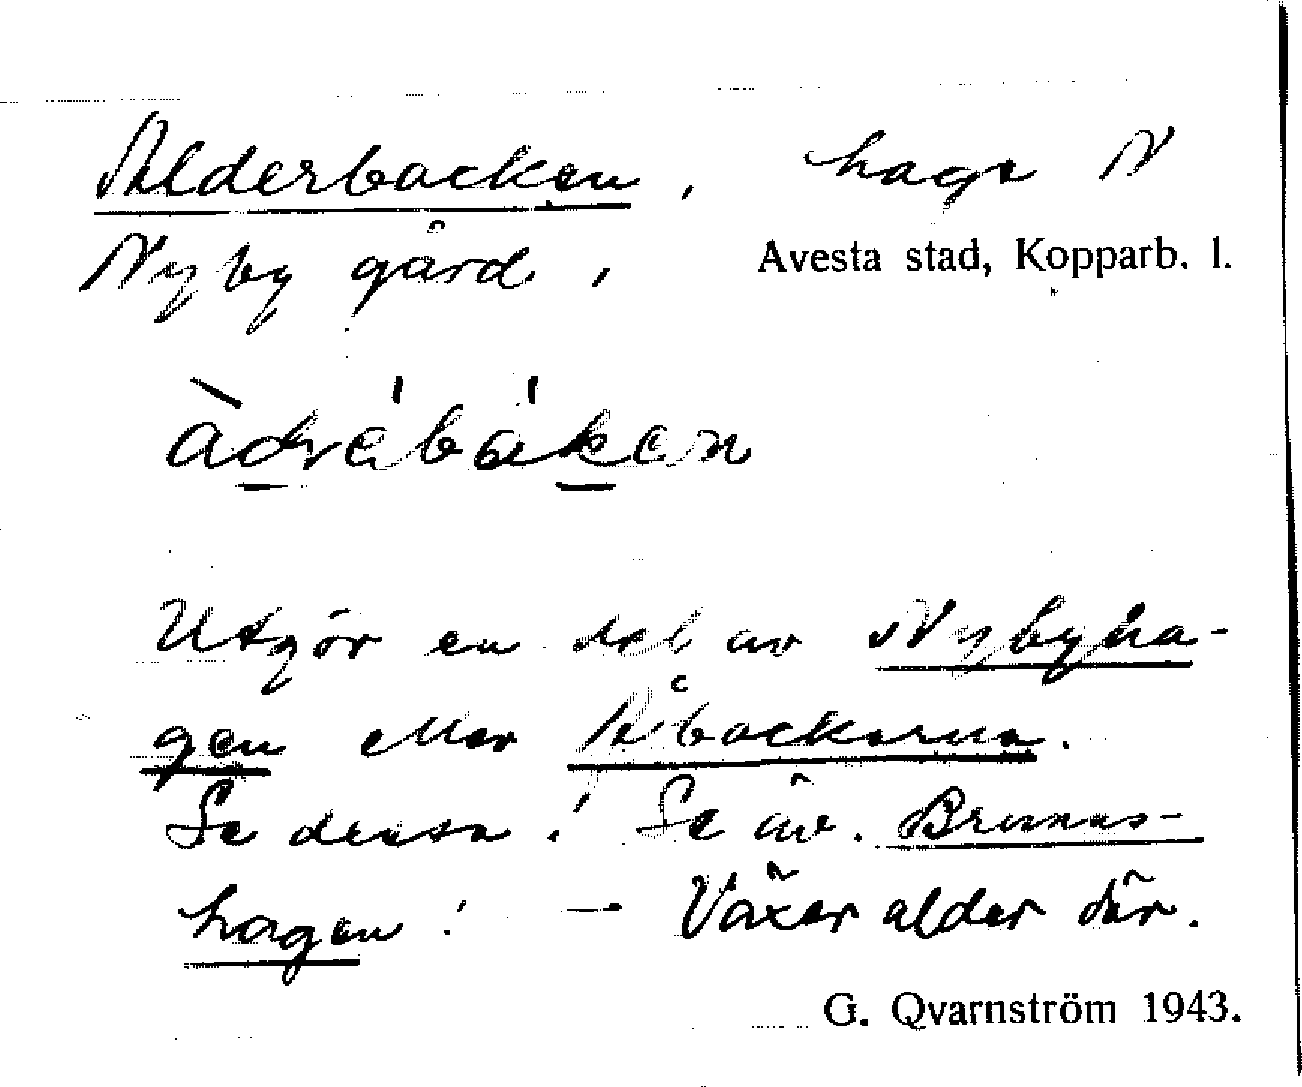 Alderbacken, hage N
Nyby gård, Avesta stad, Kopparb. l.
àdrábákan
Utgör en del av Nybyha-
gen eller Åbackarna.
Se dessa! Se äv. Brunns-
hagen! — Växer alder där.
G. Qvarnström 1943.